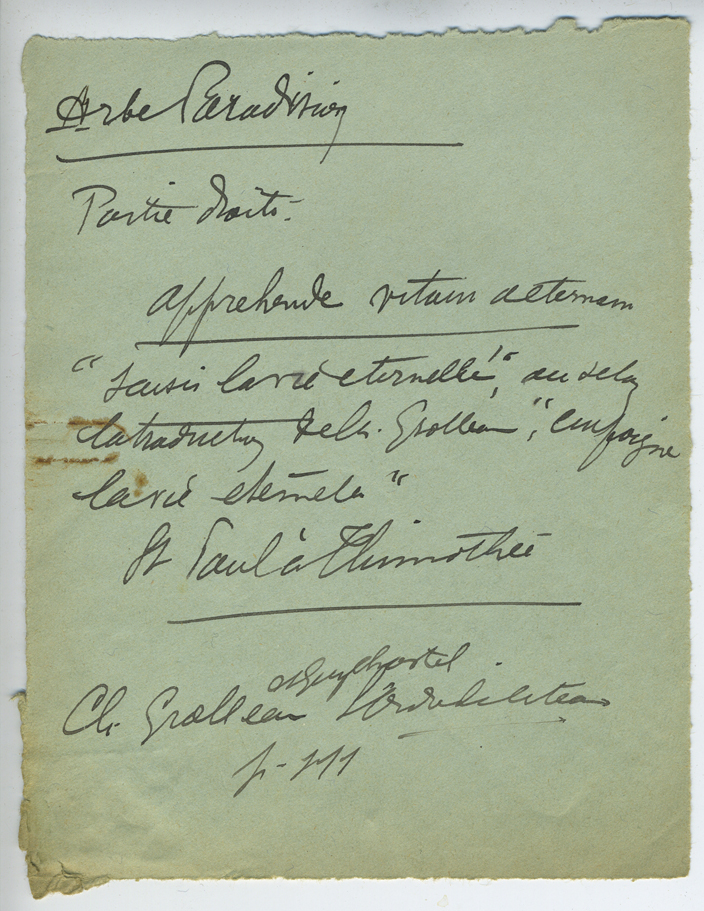 Arbre Paradision
Partie droite.
apprehende vitam aeternam
"Saisis la vie eternelle", ou selon
la traduction de Ch. Grolleau, "Empoigne
la vie eternelle"
St Paul à Thimothée
et Guy Chastel
Ch. Grolleau L'Ordre de Citeaux
p.